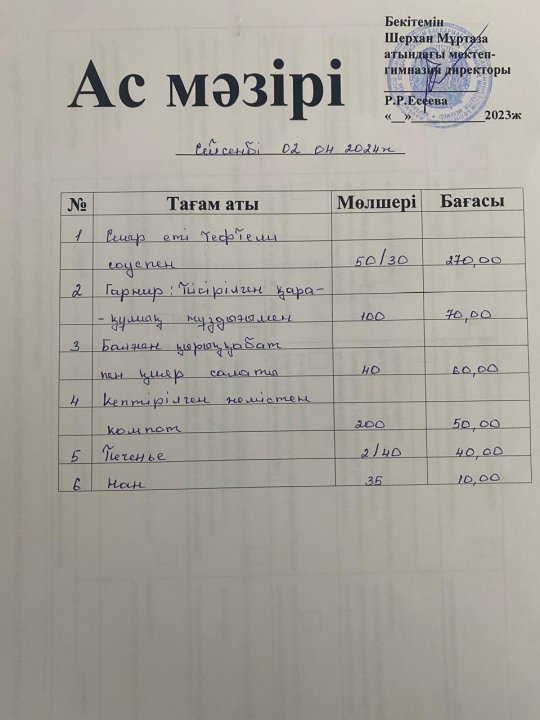 Бекітемін
Шерхан Мұртаза
атындағы мектеп-
гимназия директоры
Р.Р.Есеева
«__»___________2023ж
Ас мәзірі
Сейсенбі 02 04 2024ж
№ Тағам аты Мөлшері Бағасы
1 Сиыр еті тефтели
соуспен 50/30 270,00
2 Гарнир: Пісірілген қара-
- құмық тұздығымен 100 70,00
3 Балғын қырыққабат
пен қияр салаты 40 60,00
4 Кептірілген жемістен
компот 200 50,00
5 Печенье 2/40 40,00
6 Нан 35 10,00